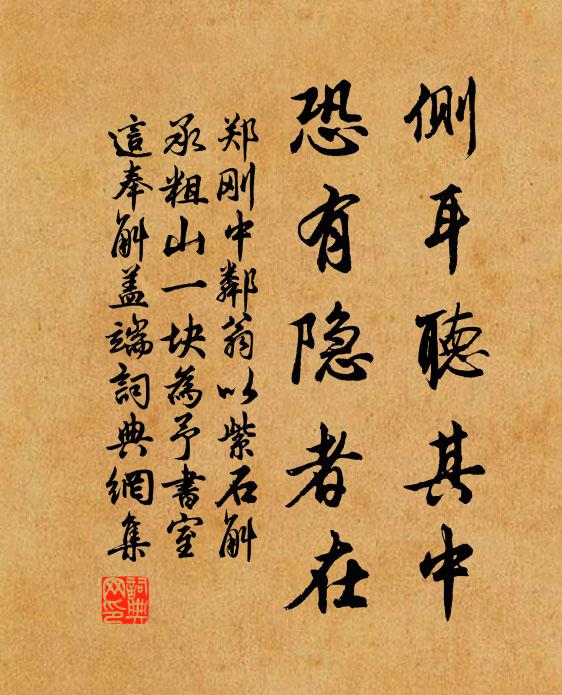 侧耳聽其中
恐有隐者在
郑刚中鄰翁以紫石斛
承粗山一块為予書室
這奉斛盖端詞典網集
詞典网印